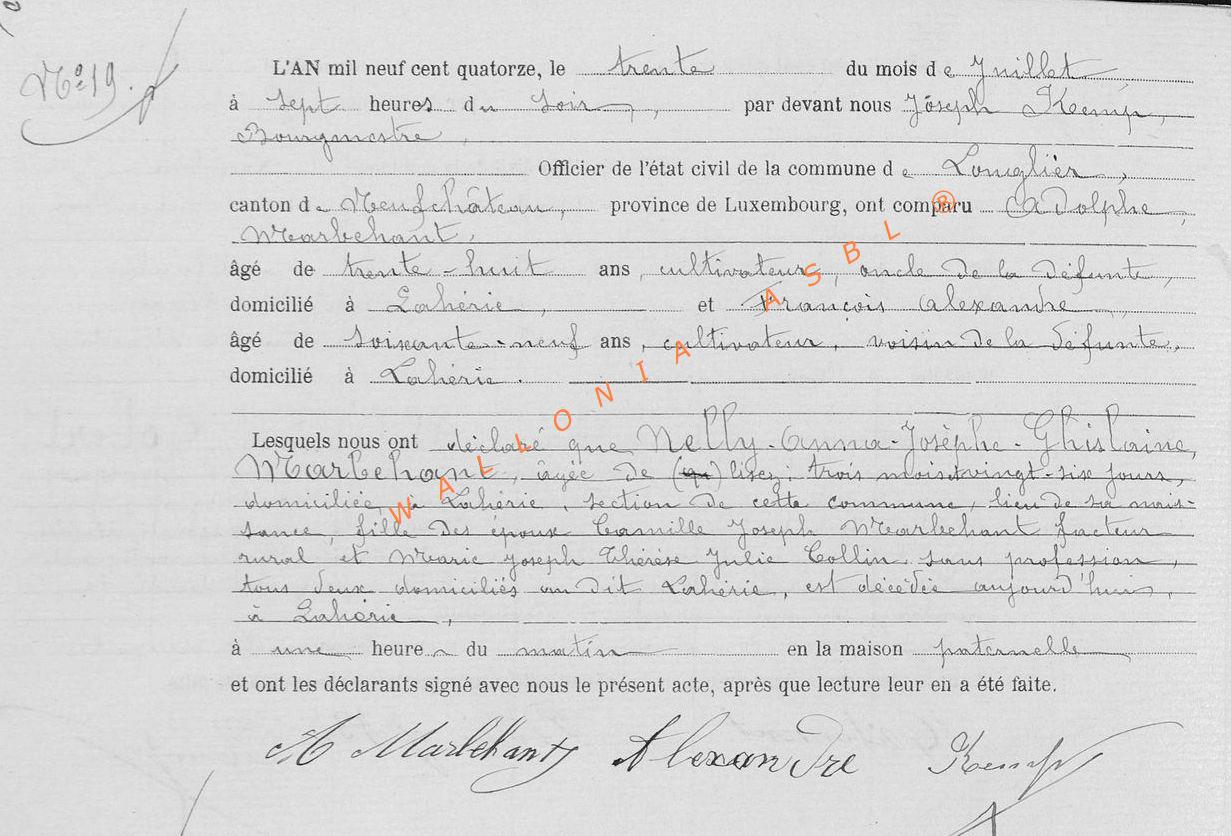 Nº 19.
L'AN mil neuf cent quatorze, le trente du mois de Juillet
à sept heures du soir, par devant nous Joseph Kemp,
Bourgmestre,
Officier de l'état civil de la commune de Longlier,
canton de Neufchâteau, province de Luxembourg, ont comparu Adolphe
Marbehant,
âgé de trente-huit ans, cultivateur, oncle de la défunte,
domicilié à Lahérie, et François Alexandre
âgé de soixante-neuf ans, cultivateur, voisin de la défunte,
domicilié à Lahérie.
Lesquels nous ont déclaré que Nelly-Anna-Josèphe-Ghislaine,
Marbehant, âgée de lisez: trois mois vingt-six jours,
domiciliée à Lahérie, section de cette commune, lieu de sa nais-
sance, fille des époux Camille Joseph Marbehant facteur
rural et Marie Joseph Thérèse Julie Collin sans profession,
tous deux domiciliés au dit Lahérie, est décédée aujourd'hui,
à Lahérie,
à une heure du matin en la maison paternelle
et ont les déclarants signé avec nous le présent acte, après que lecture leur en a été faite.
A Marbehant Alexandre Kemp
WALLONIA ASBL ®